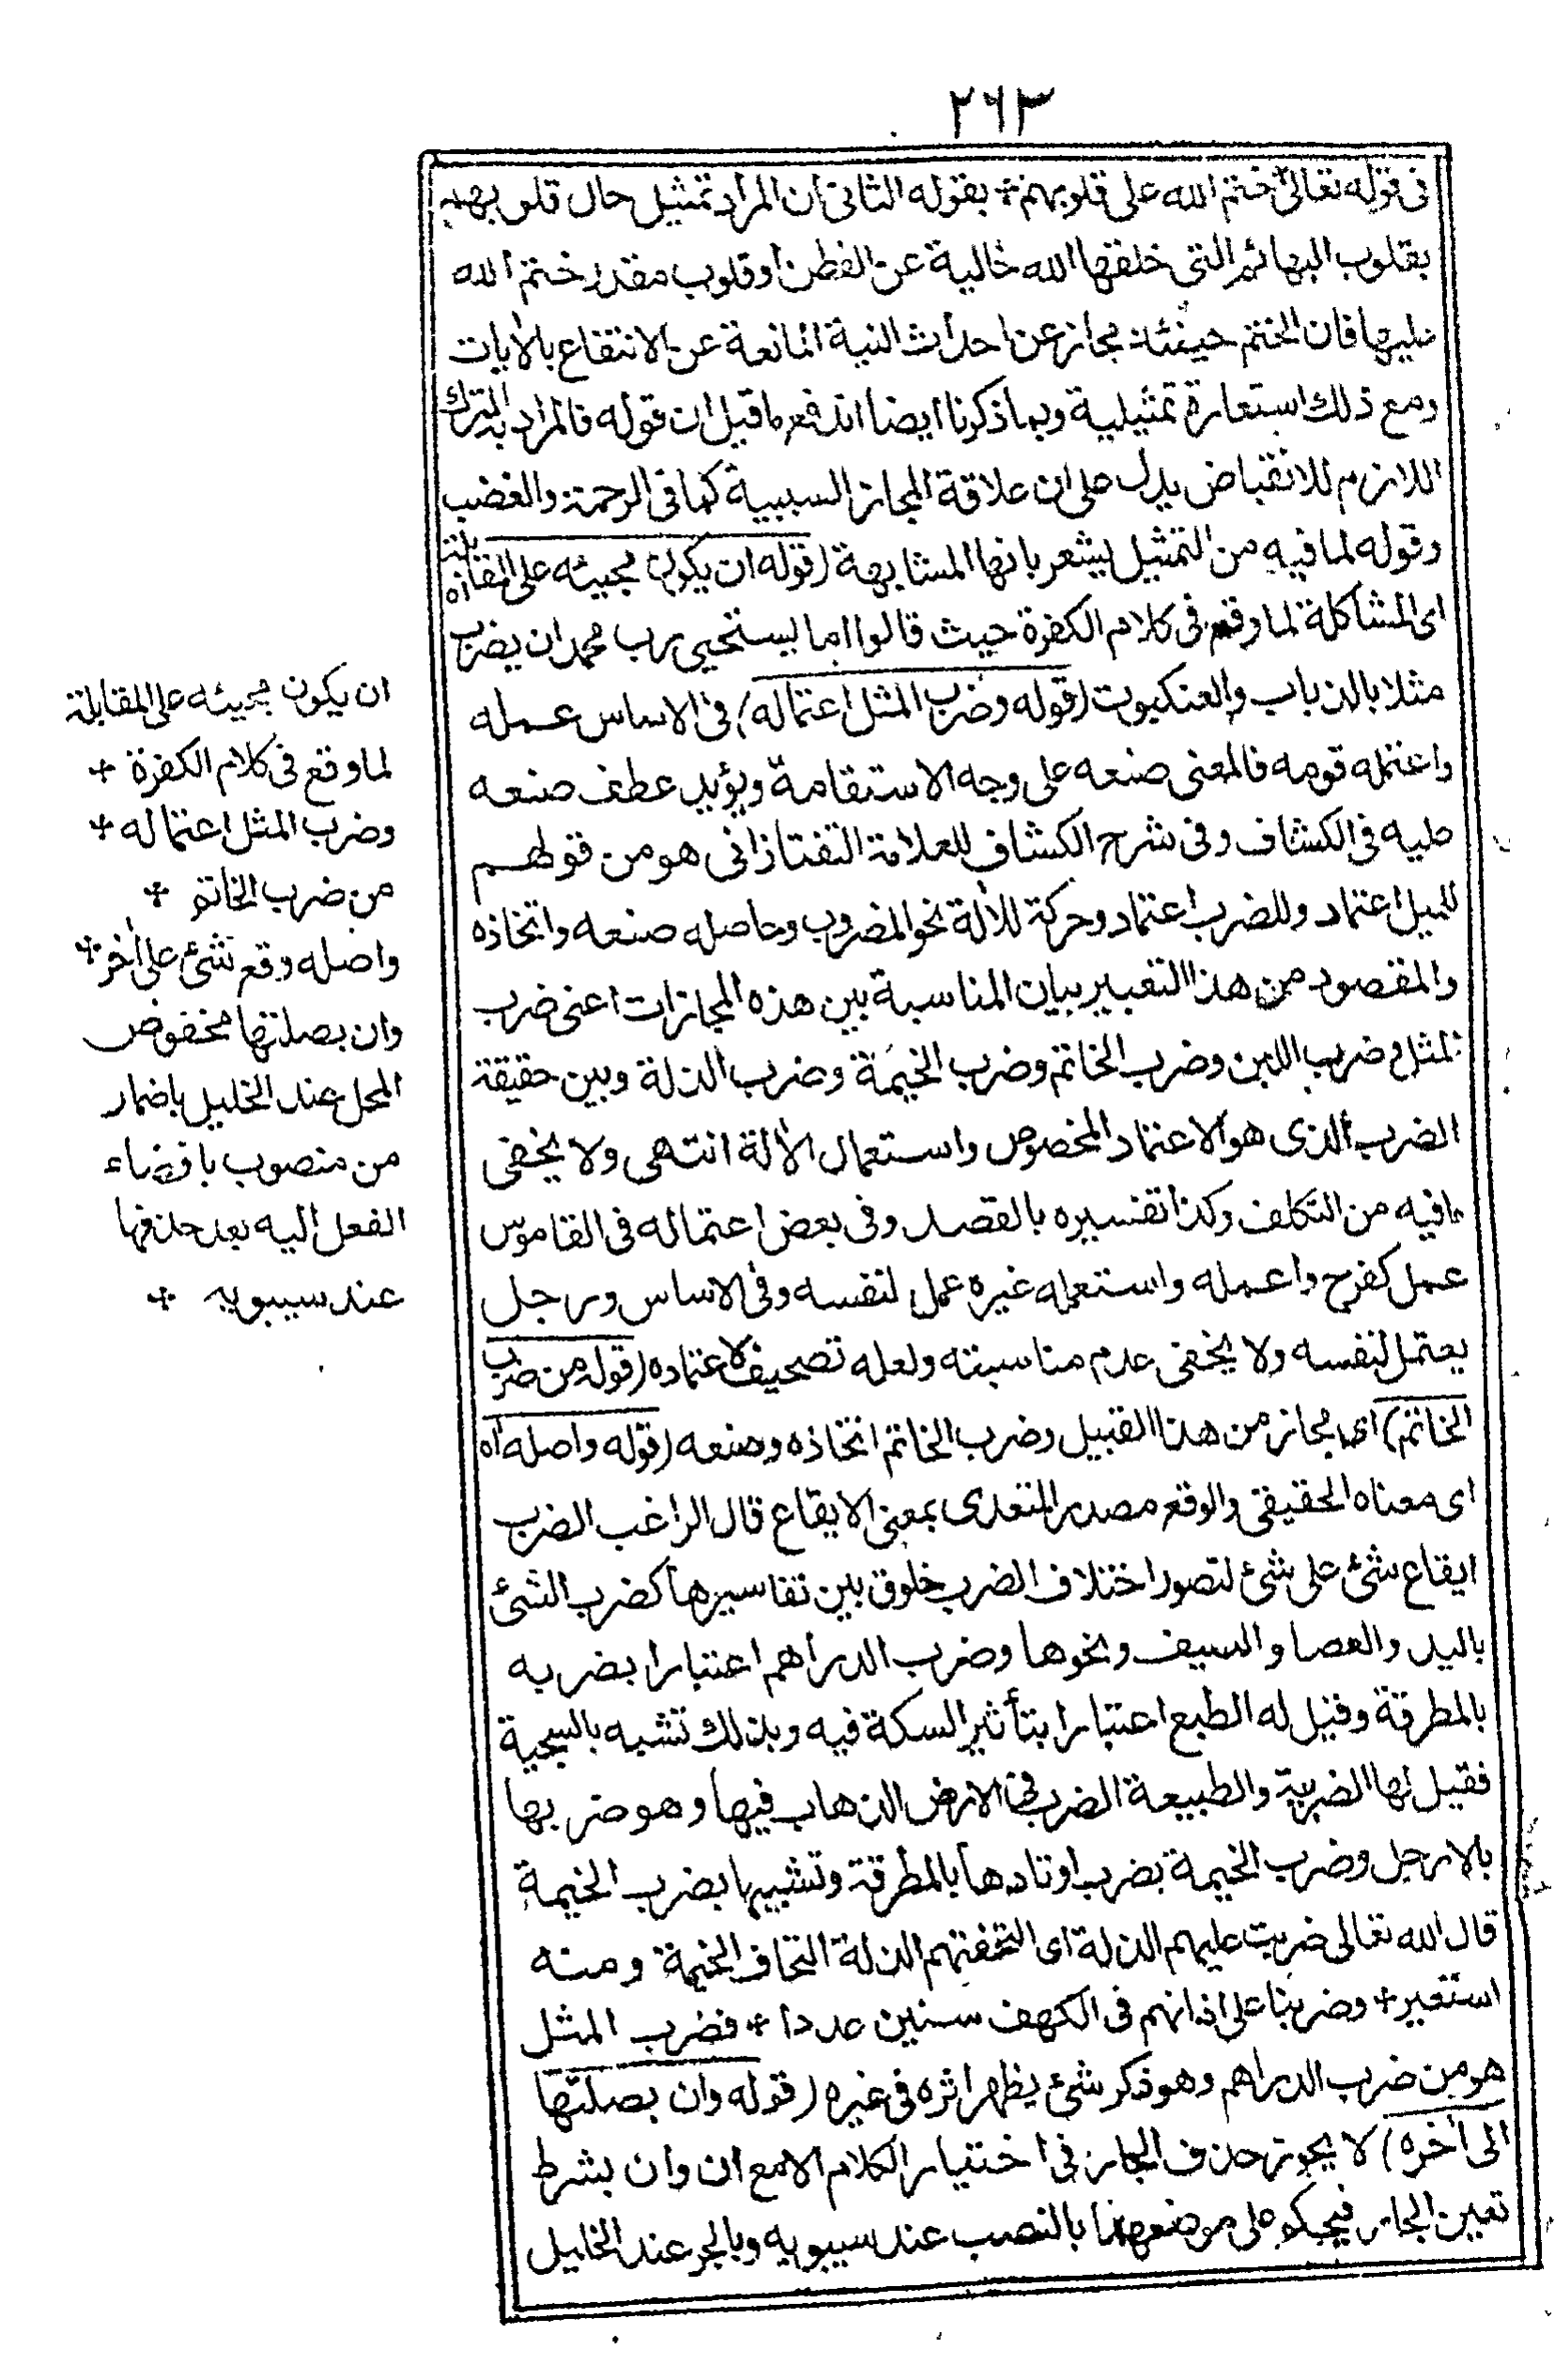 ٢٦٣
فى قوله تعالى ختم الله على قلوبهم + بقوله الثانى ان المراد تمثيل حال قلوبهم
بقلوب البهائم التى خلقها الله خالية عن الفطن او قلوب مقدر ختم الله
عليها فان الختم حينئذ مجاز عن احداث الهيئة المانعة عن الانتفاع بالايات
ومع ذلك استعارة تمثيلية وبما ذكرنا ايضا اندفع ما قيل ان قوله فالمراد به الترك
اللازم للانقباض يدل على ان علاقة المجاز السببية كما فى الرحمة والغضب
وقوله لما فيه من التمثيل يشعر بانها المشابهة (قوله ان يكون مجيئه على المقابلة اه
اى المشاكلة لما وقع فى كلام الكفرة حيث قالوا اما يستحيى رب محمد ان يضرب
مثلا بالذباب والعنكبوت (قوله وضرب المثل اعتماله) فى الاساس عمله
واعتمله قومه فالمعنى صنعه على وجه الاستقامة ويؤيد عطف صنعه
عليه فى الكشاف وفى شرح الكشاف للعلامة التفتازانى هو من قولهم
للميل اعتماد وللضرب اعتماد وحركة للألة نحو المضروب وحاصله صنعه واتخاذه
والمقصود من هذا التعبير بيان المناسبة بين هذه المجازات اعنى ضرب
المثل وضرب اللبن وضرب الخاتم وضرب الخيمة وضرب الذلة وبين حقيقة
الضرب الذى هو الاعتماد المخصوص واستعمال الألة انتهى ولا يخفى
ما فيه من التكلف وكذا تفسيره بالقصد وفى بعض اعتماله فى القاموس
عمل كفرح واعمله واستعمله غيره عمل لنفسه وفى الاساس ورجل
يعتمل لنفسه ولا يخفى عدم مناسبته ولعله تصحيف لاعتماده (قوله من ضرب
الخاتم) اى مجاز من هذا القبيل وضرب الخاتم اتخاذه وصنعه (قوله واصله اه
اى معناه الحقيقى والوقع مصدر المتعدى بمعنى الايقاع قال الراغب الضرب
ايقاع شئ على شئ لتصور اختلاف الضرب خلوق بين تفاسيرها كضرب الشئ
باليد والعصا والسيف ونحوها وضرب الدراهم اعتبارا بضربه
بالمطرقة وقيل له الطبع اعتبارا بتأثير السكة فيه وبذلك تشبه بالسجية
فقيل لها الضريبة والطبيعة الضرب فى الارض الذهاب فيها وهو ضربها
بالارجل وضرب الخيمة بضرب اوتادها بالمطرقة وتشبيها بضرب الخيمة
قال الله تعالى ضربت عليهم الذلة اى التحفتهم الذلة التحاف الخيمة ومنه
استعير + وضربنا على اذانهم فى الكهف سنين عددا + فضرب المثل
هو من ضرب الدراهم وهو ذكر شئ يظهر اثره فى غيره (قوله وان بصلتها
الى أخره) لا يجوز حذف الجار فى اختيار الكلام الا مع ان وان بشرط
تعين الجار فيحكم على موضعهما بالنصب عند سيبويه وبالجر عند الخليل
ان يكون مجيئه على المقابلة
لما وقع فى كلام الكفرة +
وضرب المثل اعتماله +
من ضرب الخاتم +
واصله وقع شئ على أخر +
وان بصلتها مخفوض
المحل عند الخليل باضمار
من منصوب بافضاء
الفعل اليه بعد حذفها
عند سيبويه +